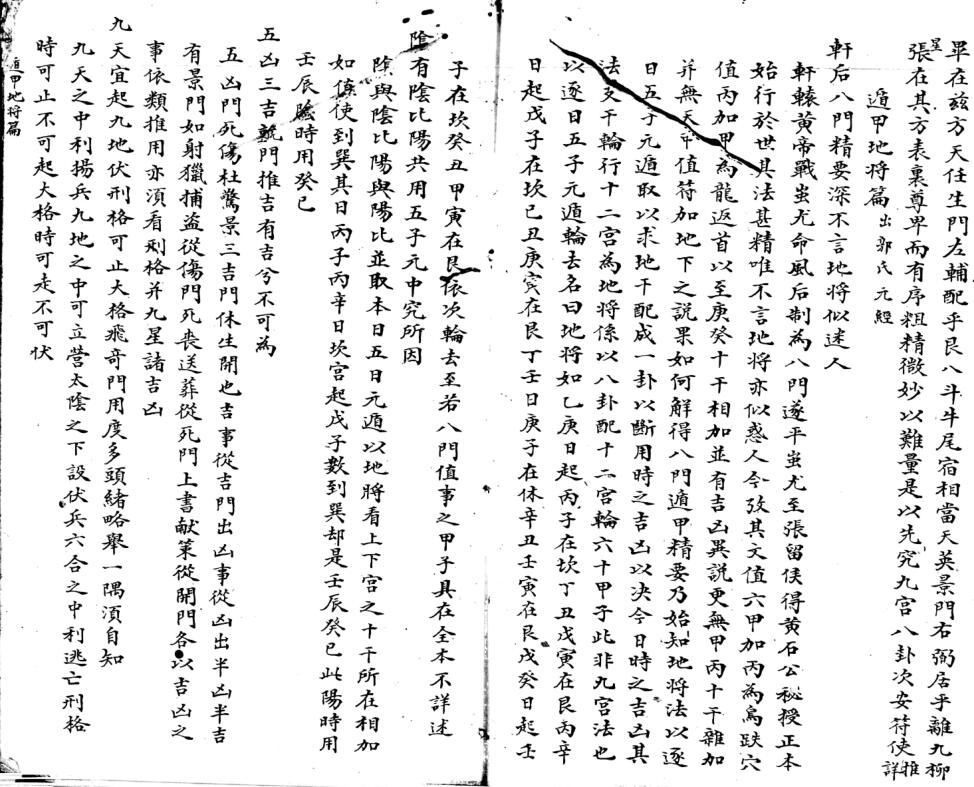 畢在兹方天任生門左輔配乎艮八斗牛尾宿相當天英景門右弼居乎離九柳
星張在其方表裏尊卑而有序粗精微妙以難量是以先究九宮八卦次安符使推詳
遁甲地将篇 出郭氏元經
軒后八門精要深不言地将似迷人
軒轅黄帝戰蚩尤命風后制為八門遂平蚩尤至張留侯得黄石公秘授正本
始行於世其法甚精唯不言地将亦似惑人今攷其文值六甲加丙為鳥跌穴
值丙加甲為龍返首以至庚癸十干相加並有吉凶異説更無甲丙十干雜加
并無天甲值符加地下之説果如何解得八門遁甲精要乃始知地将法以逐
日五子元遁取以求地干配成一卦以断用時之吉凶以决今日時之吉凶其
法支干輪行十二宮為地将係以八卦配十二宮輪六十甲子此非九宮法也
以逐日五子元遁輪去名曰地将如乙庚日起丙子在坎丁丑戊寅在艮丙辛
日起戊子在坎己丑庚寅在艮丁壬日庚子在休辛丑壬寅在艮戊癸日起壬
子在坎癸丑甲寅在艮依次輪去至若八門值事之甲子具在全本不詳述
陰有陰比陽共用五子元中究所因
陰與陰比陽與陽比並取本日五日元遁以地将看上下宮之十干所在相加
如值使到巽其日丙子丙辛日坎宮起戊子數到巽却是壬辰癸巳此陽時用
壬辰陰時用癸巳
五凶三吉輗門推吉有吉兮不可為
五凶門死傷杜驚景三吉門休生開也吉事從吉門出凶事從凶出半凶半吉
有景門如射獵捕盗從傷門死喪送葬從死門上書献策從開門各以吉凶之
事依類推用亦須看刑格并九星諸吉凶
九天宜起九地伏刑格可止大格飛奇門用度多頭緒略舉一隅須自知
九天之中利揚兵九地之中可立营太陰之下設伏兵六合之中利逃亡刑格
時可止不可起大格時可走不可伏
遁甲地将篇